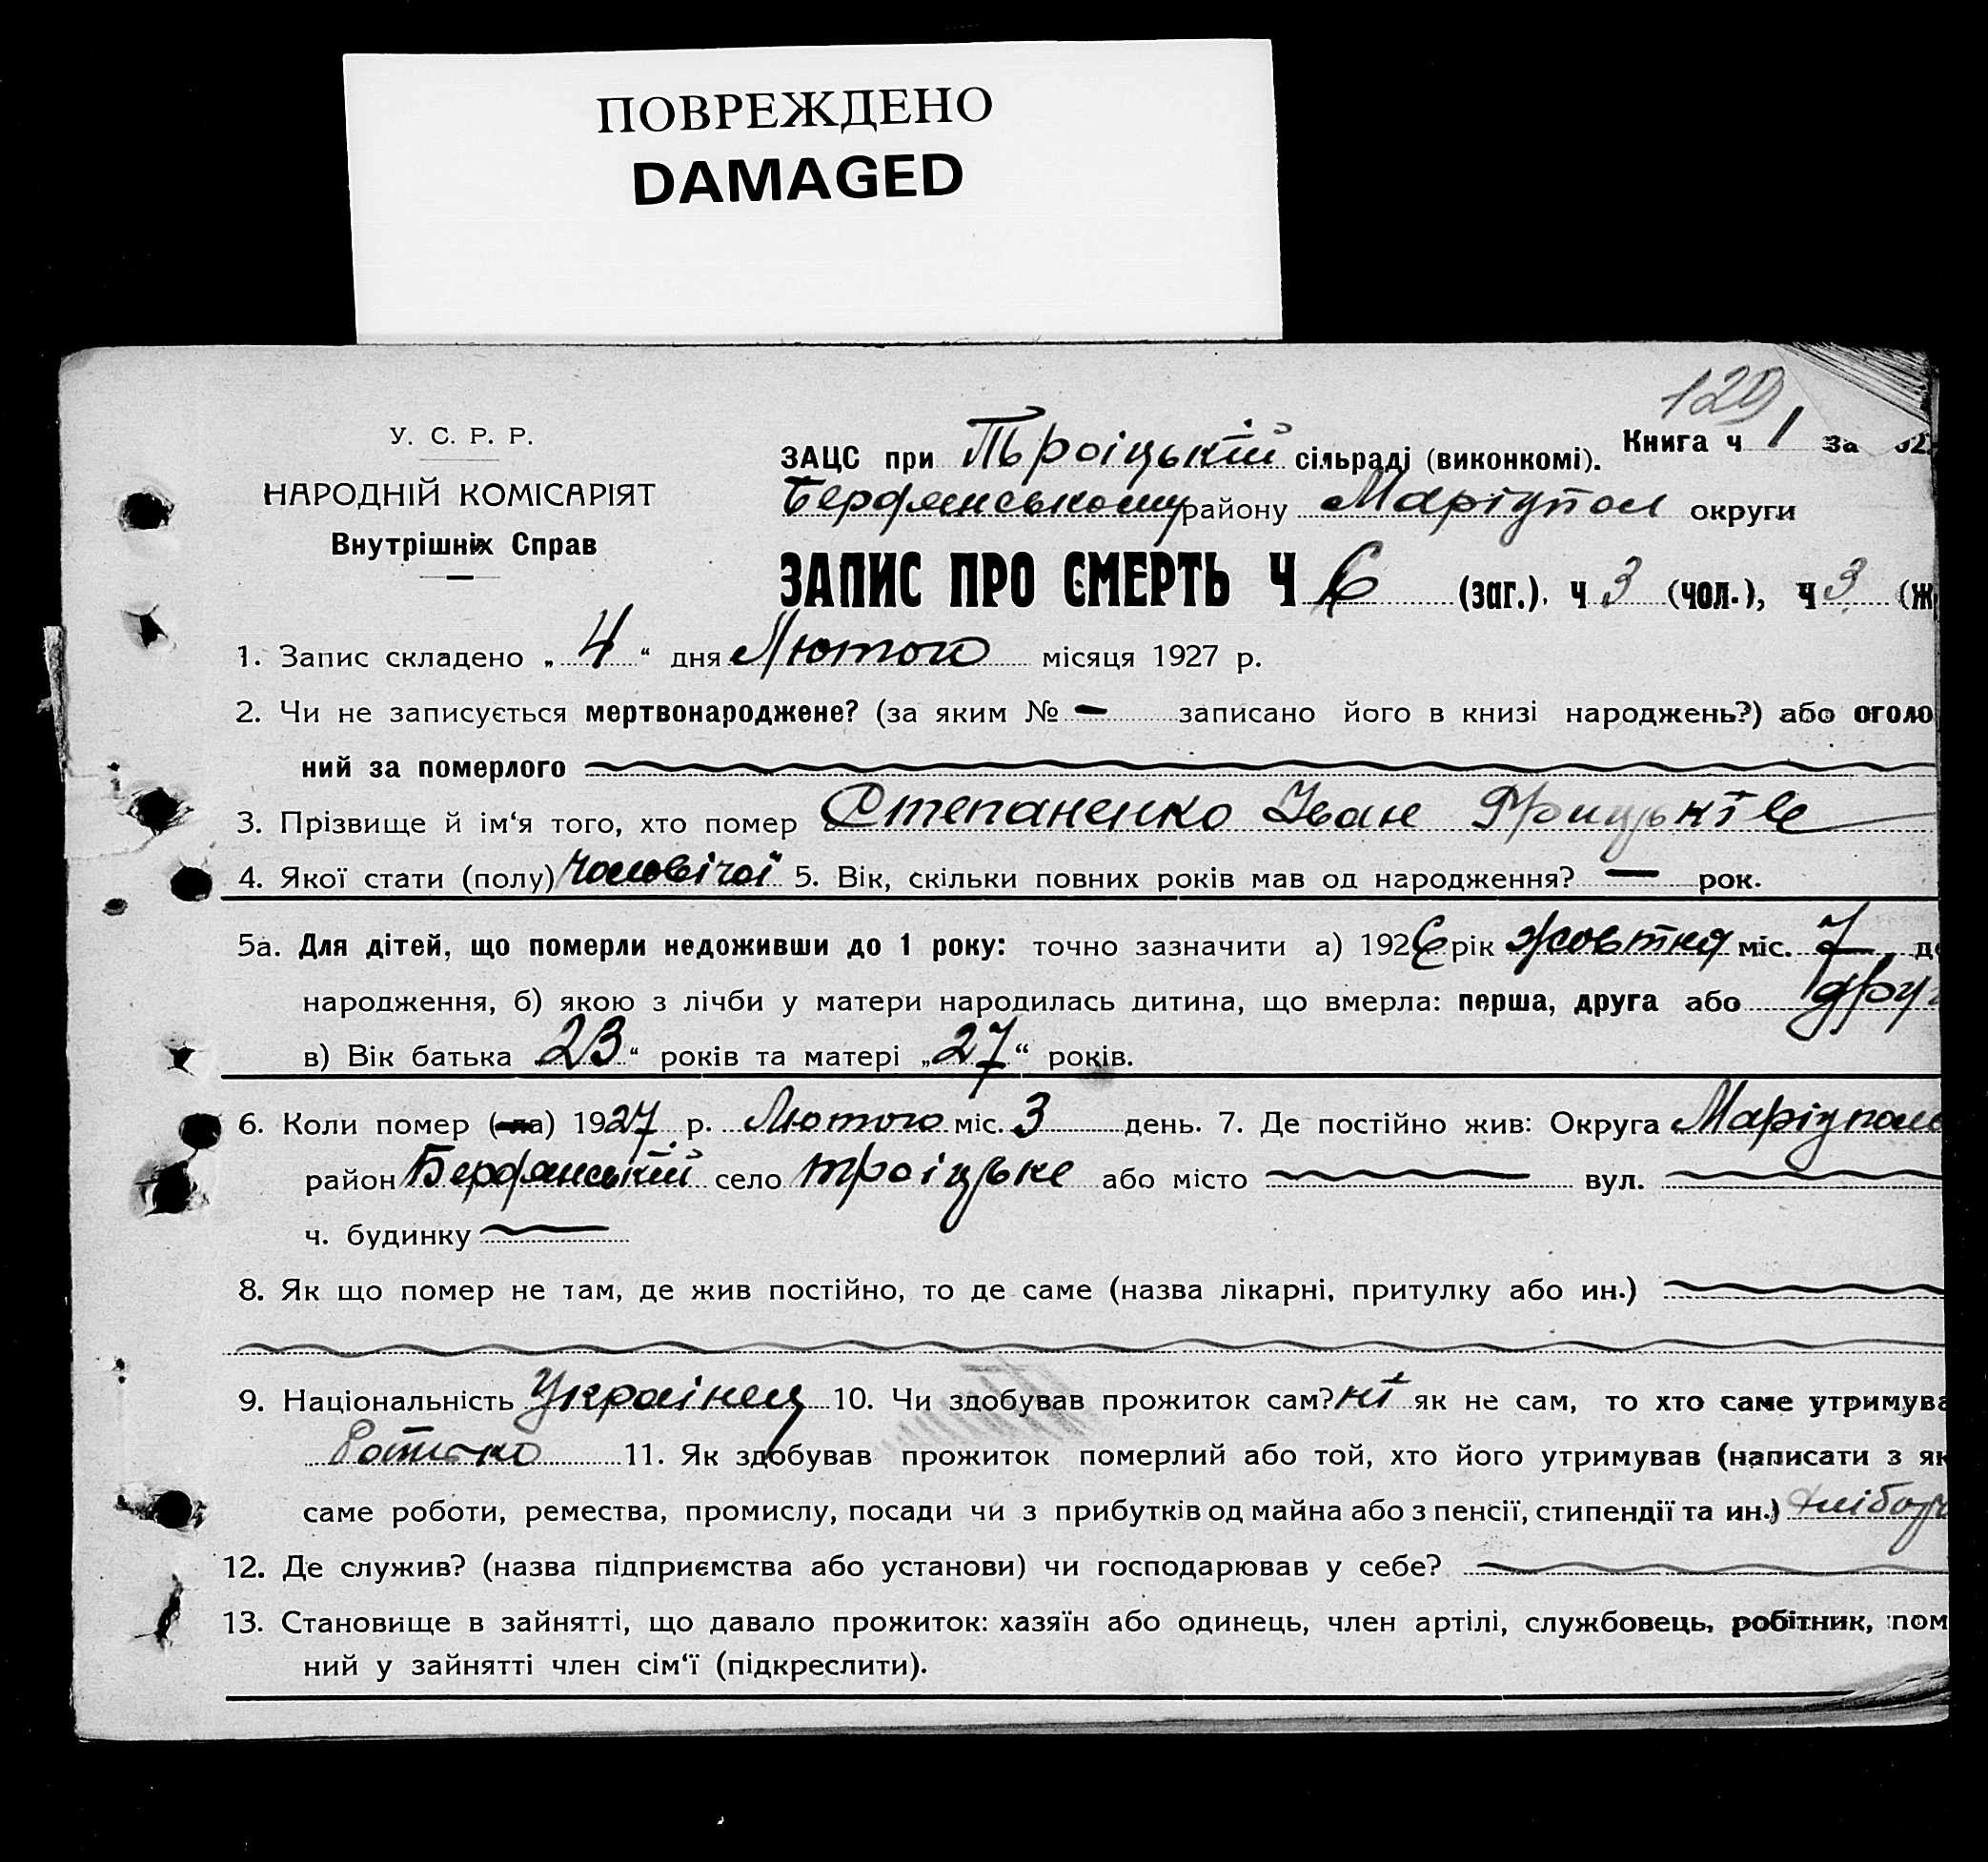 ПОВРЕЖДЕНО
DAMAGED
129
У. С. Р. Р.
НАРОДНІЙ КОМІСАРІЯТ
Внутрішніх Справ
Книга ч 1 за 92
ЗАЦС при Тьроіцькій сільраді (виконкомі).
Бердянському району Маріупол округи
ЗАПИС ПРО СМЕРТЬ Ч 6 (заг.). ч 3 (чол.), ч 3 (ж
1. Запис складено „ 4 “ дня Лютого місяця 1927 р.
2. Чи не записується мертвонароджене? (за яким № — записано його в книзі народжень?) або оголо
ний за померлого
3. Прізвище й ім‘я того, хто помер Степаненко Іван Грицьків
4. Якої стати (полу) чоловічої 5. Вік, скільки повних років мав од народження? — рок.
5а. Для дітей, що померли недоживши до 1 року: точно зазначити а) 1926 рік жовтня міс. 7 де
народження, б) якою з лічби у матери народилась дитина, що вмерла: перша, друга або друг
в) Вік батька 23 “ років та матері „ 27 “ років.
6. Коли помер (-ла) 1927 р. Лютого міс. 3 день. 7. Де постійно жив: Округа Маріуполь
район Бердянський село троіцьке або місто вул.
ч. будинку
8. Як що помер не там, де жив постійно, то де саме (назва лікарні, притулку або ин.)
9. Національність Українец 10. Чи здобував прожиток сам? ні як не сам, то хто саме утримува
11. Як здобував прожиток померлий або той, хто його утримував (написати з як
саме роботи, ремества, промислу, посади чи з прибутків од майна або з пенсії, стипендії та ин.) хлібор
12. Де служив? (назва підприємства або установи) чи господарював у себе?
13. Становище в зайнятті, що давало прожиток: хазяїн або одинець, член артілі, службовець, робітник, пом
ний у зайнятті член сім‘ї (підкреслити).